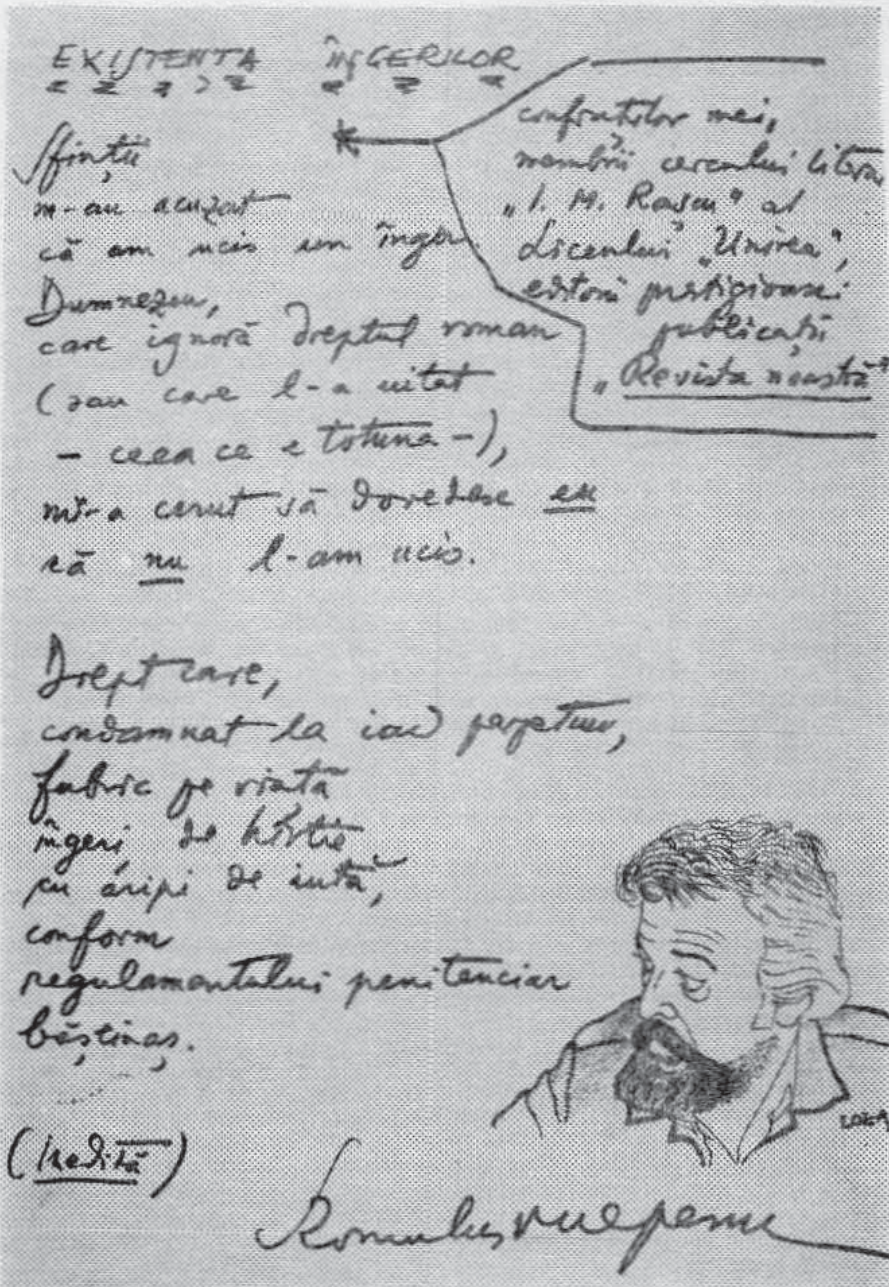 EXISTENȚA ÎNGERILOR
*
confraților mei,
membrii cercului litera
„I. M. Rașcu" al
Liceului „Unirea",
editorii prestigioasei
publicații
„Revista noastră"
Sfinții
m-au acuzat
că am ucis un înger.
Dumnezeu,
care ignoră dreptul roman
(sau care l-a uitat
- ceea ce e totuna -),
mi-a cerut să dovedesc eu
că nu l-am ucis.
Drept care,
condamnat la iad perpetuu,
fabric pe viață
îngeri de hîrtie
cu aripi de iută,
conform
regulamentului penitenciar
băștinaș.
(Inedită)
Romulus Vulpescu